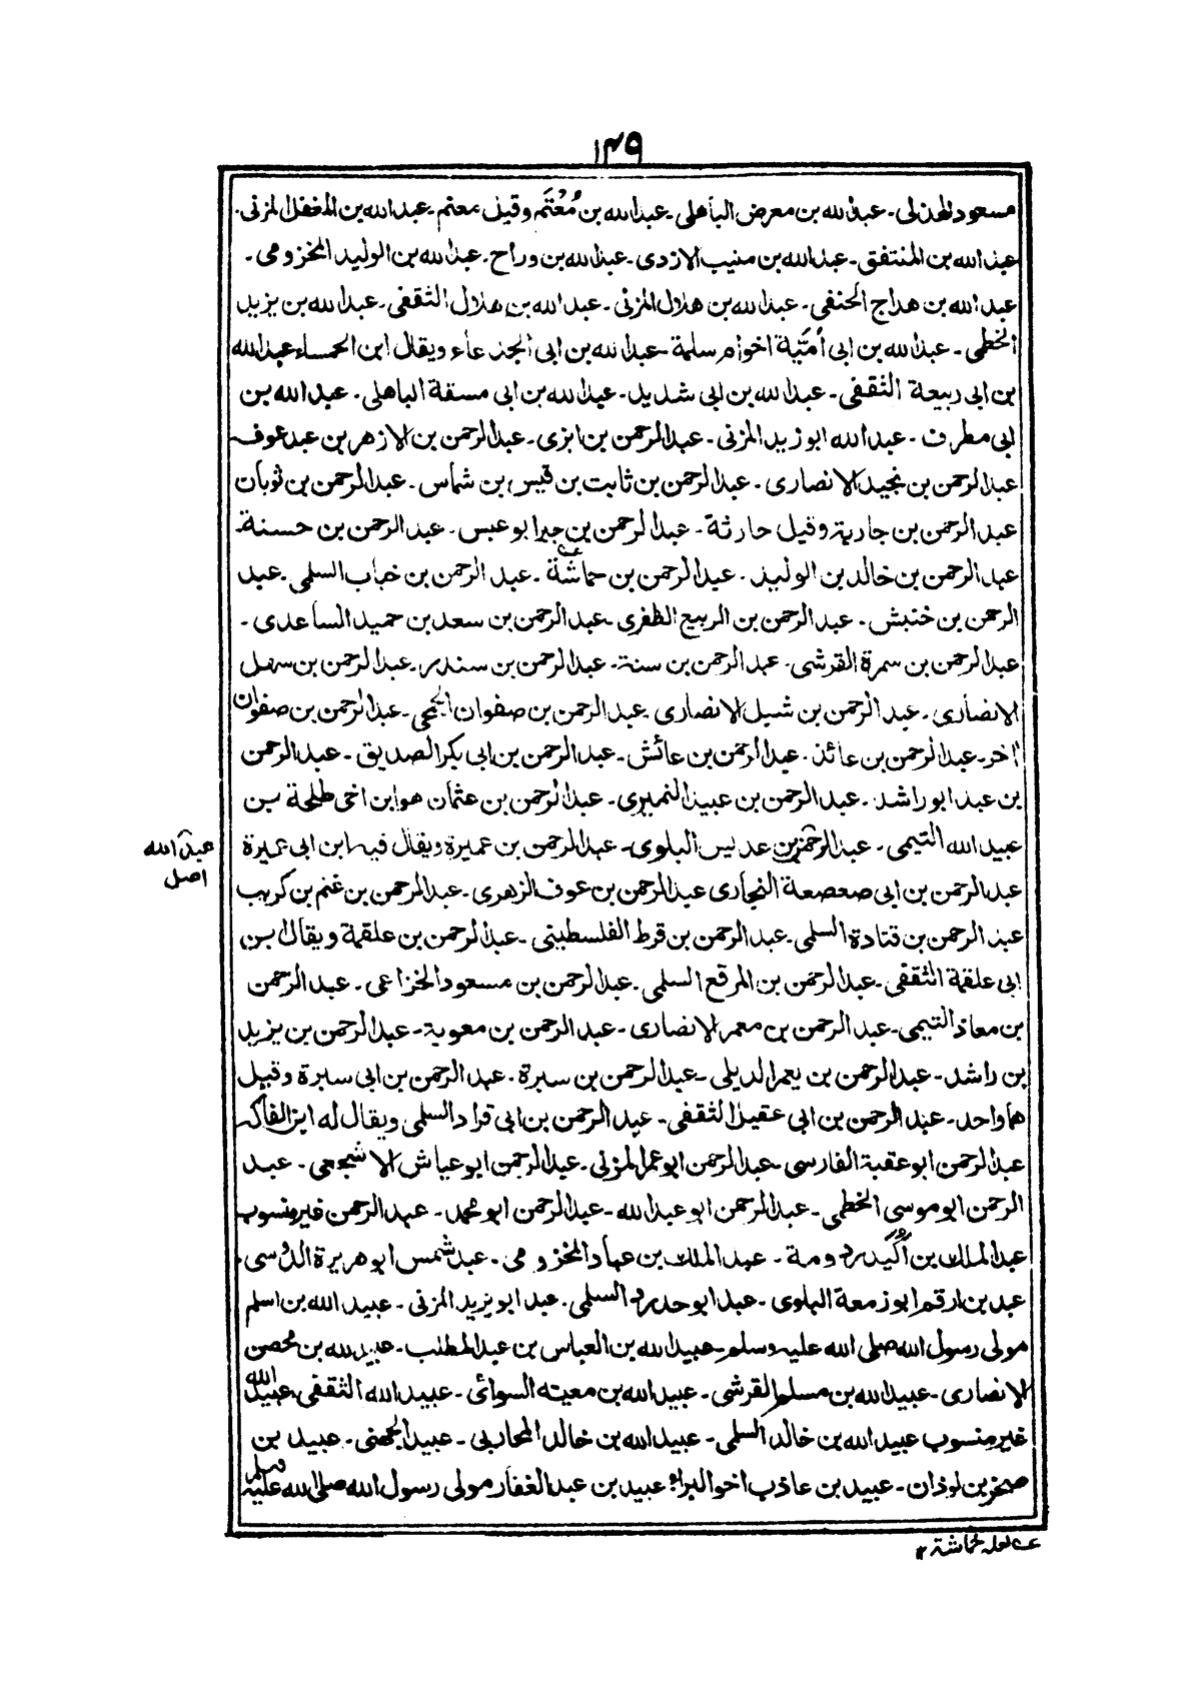 ١٣٩
مسعود الهذلى ـ عبد الله بن معرض الباهلى ـ عبد الله بن مُعْتَم وقيل معتم ـ عبد الله بن المغفل المزنى ـ
عبد الله بن المنتفق ـ عبد الله بن منيب الازدى ـ عبد الله بن وراح ـ عبد الله بن الوليد المخزومى ـ
عبد الله بن هداج الحنفى ـ عبد الله بن هلال المزنى ـ عبد الله بن هلال الثقفى ـ عبد الله بن يزيد
الخطمى ـ عبد الله بن ابى أمَيَّة اخو ام سلمة ـ عبد الله بن ابى الجذعاء ويقال ابن الحمساء عبد الله
بن ابى ربيعة الثقفى ـ عبد الله بن ابى شديد ـ عبد الله بن ابى مسقة الباهلى ـ عبد الله بن
ابى مطرف ـ عبد الله ابو زيد المزنى ـ عبد الرحمن بن ابزى ـ عبد الرحمن بن الازهر بن عبد عوف
عبد الرحمن بن نجيد الانصارى ـ عبد الرحمن بن ثابت بن قيس بن شماس ـ عبد الرحمن بن ثوبان
عبد الرحمن بن جارية وقيل حارثة ـ عبد الرحمن بن جبر ابو عبس ـ عبد الرحمن بن حسنة ـ
عبد الرحمن بن خالد بن الوليد ـ عبد الرحمن بن حماشة ـ عبد الرحمن بن خباب السلمى ـ عبد
الرحمن بن خنبش ـ عبد الرحمن بن الربيع الظفرى ـ عبد الرحمن بن سعد بن حميد الساعدى ـ
عبد الرحمن بن سمرة القرشى ـ عبد الرحمن بن سنة ـ عبد الرحمن بن سندر ـ عبد الرحمن بن سهل
الانصارى ـ عبد الرحمن بن شبل الانصارى عبد الرحمن بن صفوان الجمحى ـ عبد الرحمن بن صفوان
اخر ـ عبد الرحمن بن عائذ ـ عبد الرحمن بن عائش ـ عبد الرحمن بن ابى بكر الصديق ـ عبد الرحمن
بن عبد ابو راشد ـ عبد الرحمن بن عبيد النميرى ـ عبد الرحمن بن عثمان هو ابن اخى طلحة بن
عبيد الله التيمى ـ عبد الرحمن بن عديس البلوى ـ عبد الرحمن بن عميرة ويقال فيه ابن ابى عميرة
عبد الله
اصل
عبد الرحمن بن ابى صعصعة النجارى عبد الرحمن بن عوف الزهرى ـ عبد الرحمن بن غنم بن كريب
عبد الرحمن بن قتادة السلمى ـ عبد الرحمن بن قرط الفلسطينى ـ عبد الرحمن بن علقمة ويقال بن
ابى علقمة الثقفى ـ عبد الرحمن بن المرقع السلمى ـ عبد الرحمن بن مسعود الخزاعى ـ عبد الرحمن
بن معاذ التيمى ـ عبد الرحمن بن معمر الانصارى ـ عبد الرحمن بن معوية ـ عبد الرحمن بن يزيد
بن راشد ـ عبد الرحمن بن يعمر الديلى ـ عبد الرحمن بن سبرة ـ عبد الرحمن بن ابى سبرة وقيل
هما واحد ـ عبد الرحمن بن ابى عقيل الثقفى ـ عبد الرحمن بن ابى قراد السلمى ويقال له ابن الفاكه
عبد الرحمن ابو عقبة الفارسى ـ عبد الرحمن ابو عمر المزنى ـ عبد الرحمن ابو عياش الاشجعى ـ عبد
الرحمن ابو موسى الخطمى ـ عبد الرحمن ابو عبد الله ـ عبد الرحمن ابو محمد ـ عبد الرحمن غير منسوب
عبد الملك بن أُكَيدر دومة ـ عبد الملك بن عباد المخزومى ـ عبد شمس ابو هريرة الدوسى ـ
عبد بن ارقم ابو زمعة البلوى ـ عبد ابو حدرد السلمى ـ عبد ابو يزيد المزنى ـ عبيد الله بن اسلم
مولى رسول الله صلى الله عليه وسلم ـ عبيد الله بن العباس بن عبد المطلب ـ عبيد الله بن محصن
الانصارى ـ عبيد الله بن مسلم القرشى ـ عبيد الله بن معيه السوائى ـ عبيد الله الثقفى ـ عبيد الله
غير منسوب عبيد الله بن خالد السلمى ـ عبيد الله بن خالد المحاربى ـ عبيد الجهنى ـ عبيد بن
صخر بن لوذان ـ عبيد بن عاذب اخو البراء عبيد بن عبد الغفار مولى رسول الله صلى الله عليه وسلم
عــه لعله خماشة ١٢